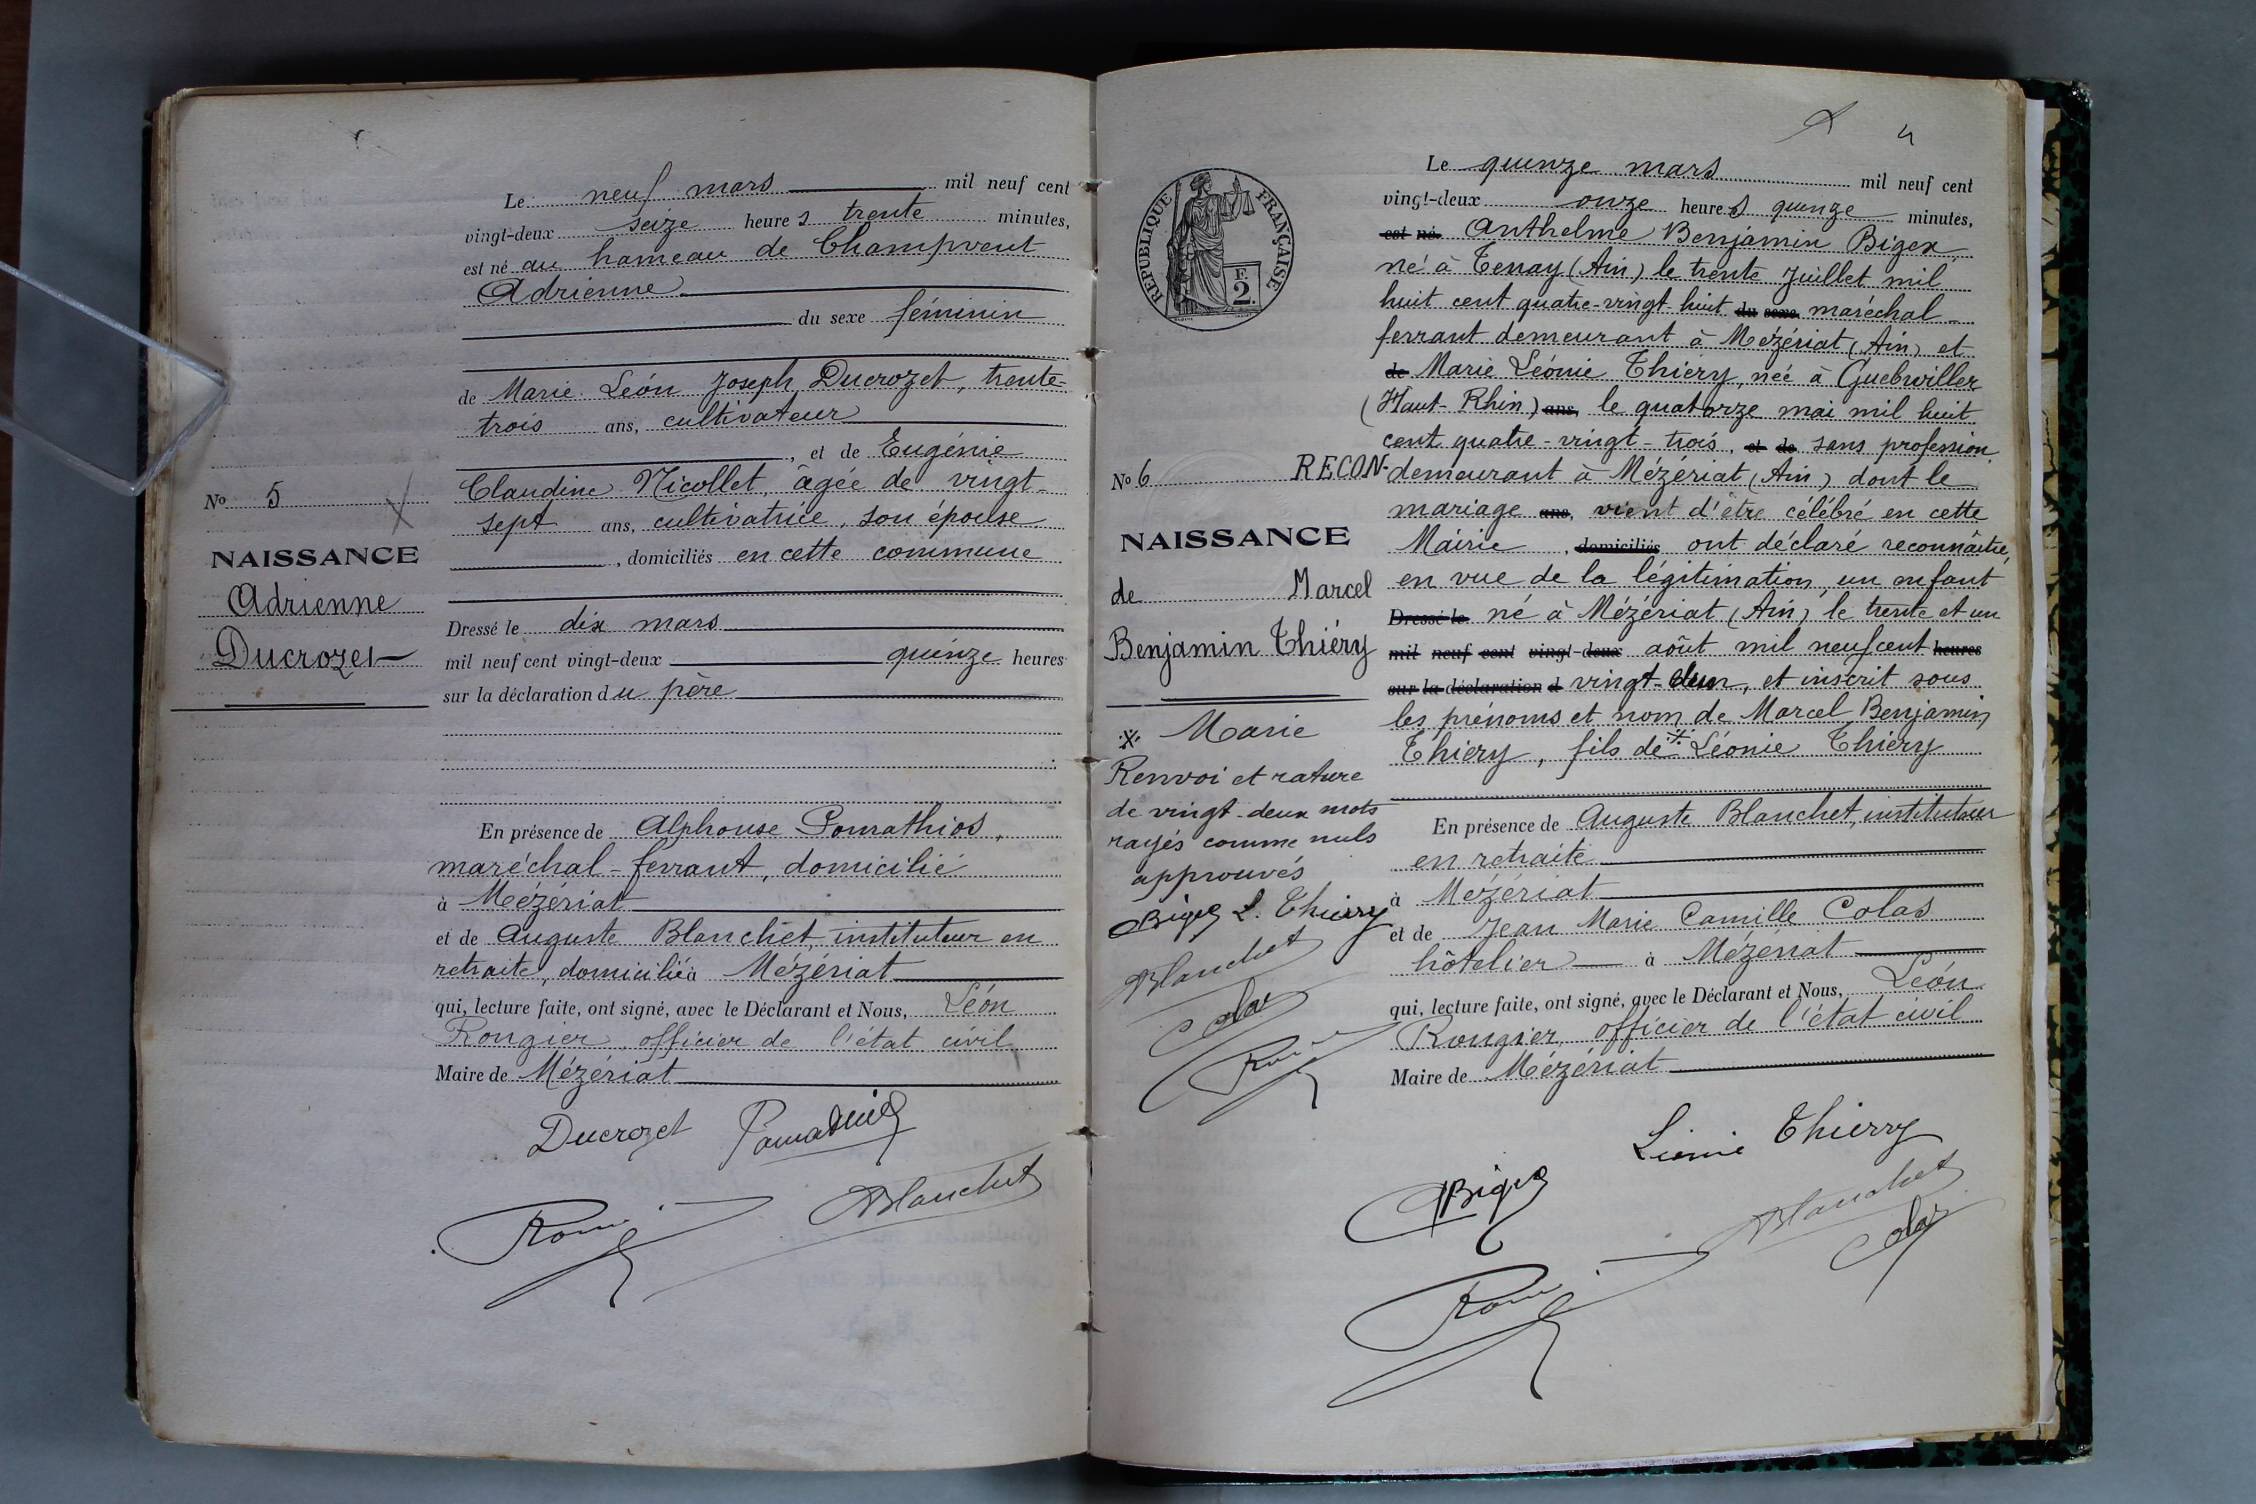 Le neuf mars mil neuf cent
vingt-deux seize heures trente minutes,
est né au hameau de Champvent
Adrienne
du sexe féminin
de Marie Léon Joseph Ducrozet, trente-
trois ans, cultivateur
, et de Eugénie
Claudine Nicollet, âgée de vingt-
sept ans, cultivatrice, son épouse
, domiciliés en cette commune
Dressé le dix mars
mil neuf cent vingt-deux quinze heures
sur la déclaration du père
En présence de Alphonse Pomathios,
maréchal-ferrant, domicilié
à Mézériat
et de Auguste Blanchet, instituteur en
retraite, domicilié à Mézériat
qui, lecture faite, ont signé, avec le Déclarant et Nous, Léon
Rongier, officier de l'état civil
Maire de Mézériat
Ducrozet
Blanchet
No 5
NAISSANCE
Adrienne
Ducrozet
4
REPUBLIQUE FRANÇAISE
F.
2.
Le quinze mars mil neuf cent
vingt-deux onze heures quinze minutes,
est né Anthelme Benjamin Bigex,
né à Tenay (Ain) le trente Juillet mil
huit cent quatre-vingt-huit du sexe maréchal-
ferrant demeurant à Mézériat (Ain) et
de Marie Léonie Thiéry, née à Guebwiller
(Haut-Rhin) ans, le quatorze mai mil huit
cent quatre-vingt-trois, et de sans profession
demeurant à Mézériat (Ain) dont le
mariage ans, vient d'être célébré en cette
Mairie, domiciliés ont déclaré reconnaître,
en vue de la légitimation, un enfant
Dressé le né à Mézériat (Ain), le trente et un
mil neuf cent vingt-deux août mil neuf cent heures
sur la déclaration d vingt, et inscrit sous
les prénoms et nom de Marcel Benjamin
Thiéry, fils de Léonie Thiéry
En présence de Auguste Blanchet, instituteur
en retraite
à Mézériat
et de Jean Marie Camille Colas
hôtelier à Mézériat
qui, lecture faite, ont signé, avec le Déclarant et Nous, Léon
Rongier, officier de l'état civil
Maire de Mézériat
Léonie Thierry
Bigex
Blanchet
Colas
No 6 RECON-
NAISSANCE
de Marcel
Benjamin Thiéry
Marie
Renvoi et rature
de vingt-deux mots
rayés comme nuls
approuvés
Bigex L. Thierry
Blanchet
Colas